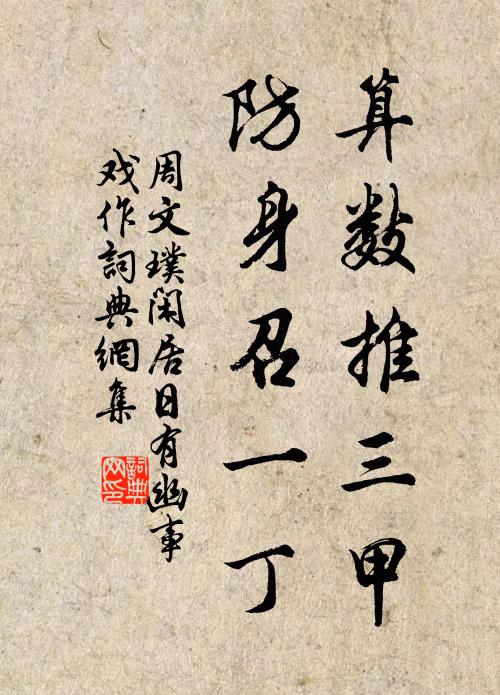 算数推三甲
防身召一丁
周文璞閑居日有幽事
戏作詞典網集
詞典网印